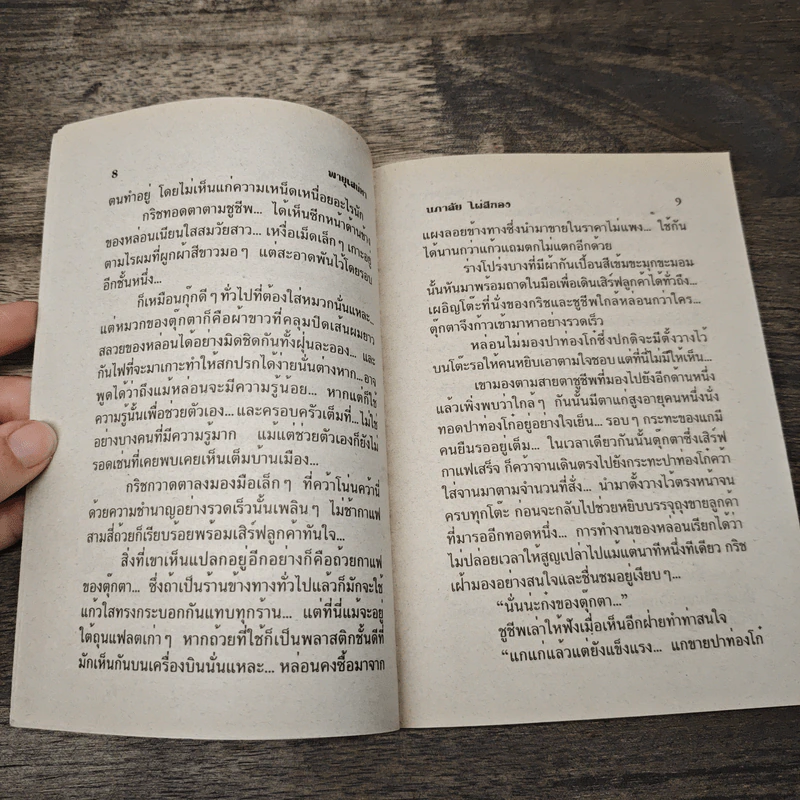 8
พายุเสน่หา
ตนทำอยู่ โดยไม่เห็นแก่ความเหน็ดเหนื่อยอะไรนัก
กริชทอดตาตามชูชีพ... ได้เห็นซีกหน้าด้านข้าง
ของหล่อนเนียนใสสมวัยสาว... เหงื่อเม็ดเล็กๆ เกาะอยู่
ตามไรผมที่ผูกผ้าสีขาวมอๆ แต่สะอาดพันไว้โดยรอบ
อีกชั้นหนึ่ง...
ก็เหมือนกุ๊กดีๆ ทั่วไปที่ต้องใส่หมวกนั่นแหละ...
แต่หมวกของตุ๊กตาก็คือผาขาวที่คลุมปิดเส้นผมยาว
สลวยของหล่อนได้อย่างมิดชิดกันทั้งฝุ่นละออง... และ
กันไฟที่จะมาเกาะทำให้สกปรกได้ง่ายนั่นต่างหาก... อาจ
พูดได้ว่าถึงแม้หล่อนจะมีความรู้น้อย... หากแต่ก็ใช้
ความรู้นั้นเพื่อช่วยตัวเอง... และครอบครัวเต็มที่... ไม่ใช่
อย่างบางคนที่มีความรู้มาก แม้แต่ช่วยตัวเองก็ยังไม่
รอดเช่นที่เคยพบเคยเห็นเต็มบ้านเมือง...
กริชกวาดตาลงมองมือเล็กๆ ที่คว้าโน่นคว้านี่
ด้วยความชำนาญอย่างรวดเร็วนั้นเพลินๆ ไม่ช้ากาแฟ
สามสี่ถ้วยก็เรียบร้อยพร้อมเสิร์ฟลูกค้าทันใจ...
สิ่งที่เขาเห็นแปลกอยู่อีกอย่างก็คือถ้วยกาแฟ
ของตุ๊กตา... ซึ่งถ้าเป็นร้านข้างทางทั่วไปแล้วก็มักจะใช้
แก้วใสทรงกระบอกกันแทบทุกร้าน... แต่ที่นี่แม้จะอยู่
ใต้ถุนแฟลตเก่าๆ หากถ้วยที่ใช้ก็เป็นพลาสติกชั้นดีที่
มักเห็นกันบนเครื่องบินนั่นแหละ... หล่อนคงซื้อมาจาก
นภาลัย ไผ่สีทอง
9
แผงลอยข้างทางซึ่งนำมาขายในราคาไม่แพง... ใช้กัน
ได้นานกว่าแก้วแถมตกไม่แตกอีกด้วย
ร่างโปร่งบางที่มีผ้ากันเปื้อนสีเข้มขะมุกขะมอม
นั้นหันมาพร้อมถาดในมือเพื่อเดินเสิร์ฟลูกค้าได้ทั่วถึง...
เผอิญโต๊ะที่นั่งของกริชและชูชีพใกล้หล่อนกว่าใคร...
ตุ๊กตาจึงก้าวเข้ามาหาอย่างรวดเร็ว
หล่อนไม่มองปาทองโก๋ซึ่งปกติจะมีตั้งวางไว้
บนโต๊ะรอให้คนหยิบเอาตามใจชอบ แต่ที่นี่ไม่มีให้เห็น...
เขามองตามสายตาชูชีพที่มองไปยังอีกด้านหนึ่ง
แล้วเพิ่งพบว่าใกล้ๆ กันนั้นมีตาแกสูงอายุคนหนึ่งนั่ง
ทอดปาท่องโก๋อยู่อย่างใจเย็น... รอบๆ กระทะของแกมี
คนยืนรออยู่เต็ม... ในเวลาเดียวกันนั้นตุ๊กตาซึ่งเสิร์ฟ
กาแฟเสร็จ ก็คว้าจานเดินตรงไปยังกระทะปาท่องโก๋คว้า
ใส่จานมาตามจำนวนที่สั่ง... นำมาตั้งวางไว้ตรงหน้าจน
ครบทุกโต๊ะ ก่อนจะกลับไปช่วยหยิบบรรจุถุงขายลูกค้า
ที่มารออีกทอดหนึ่ง... การทำงานของหล่อนเรียกได้ว่า
ไม่ปล่อยเวลาให้สูญเปล่าไปแม้แต่นาทีหนึ่งทีเดียว กริช
เฝ้ามองอย่างสนใจและชื่นชมอยู่เงียบๆ...
“นั่นน่ะก๋งของตุ๊กตา...”
ชูชีพเล่าให้ฟังเมื่อเห็นอีกฝ่ายทำท่าสนใจ
“แกแก่แล้วแต่ยังแข็งแรง... แกขายปาท่องโก๋